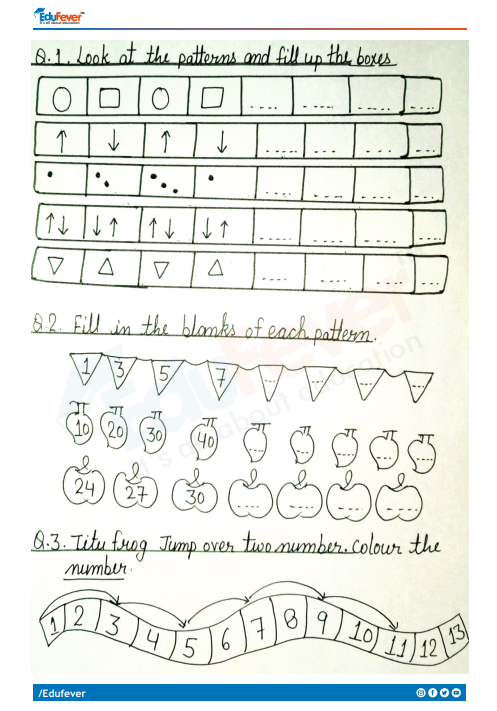 EduFever
It's all about education
Q.1. Look at the patterns and fill up the boxes
↑ ↓ ↑ ↓
↑↓ ↓↑ ↑↓ ↓↑
Q.2. Fill in the blanks of each pattern.
1 3 5 7
10 20 30 40
24 27 30
EduFever
It's all about education
Q.3. Titu frog Jump over two number. Colour the
number.
1 2 3 4 5 6 7 8 9 10 11 12 13
/Edufever